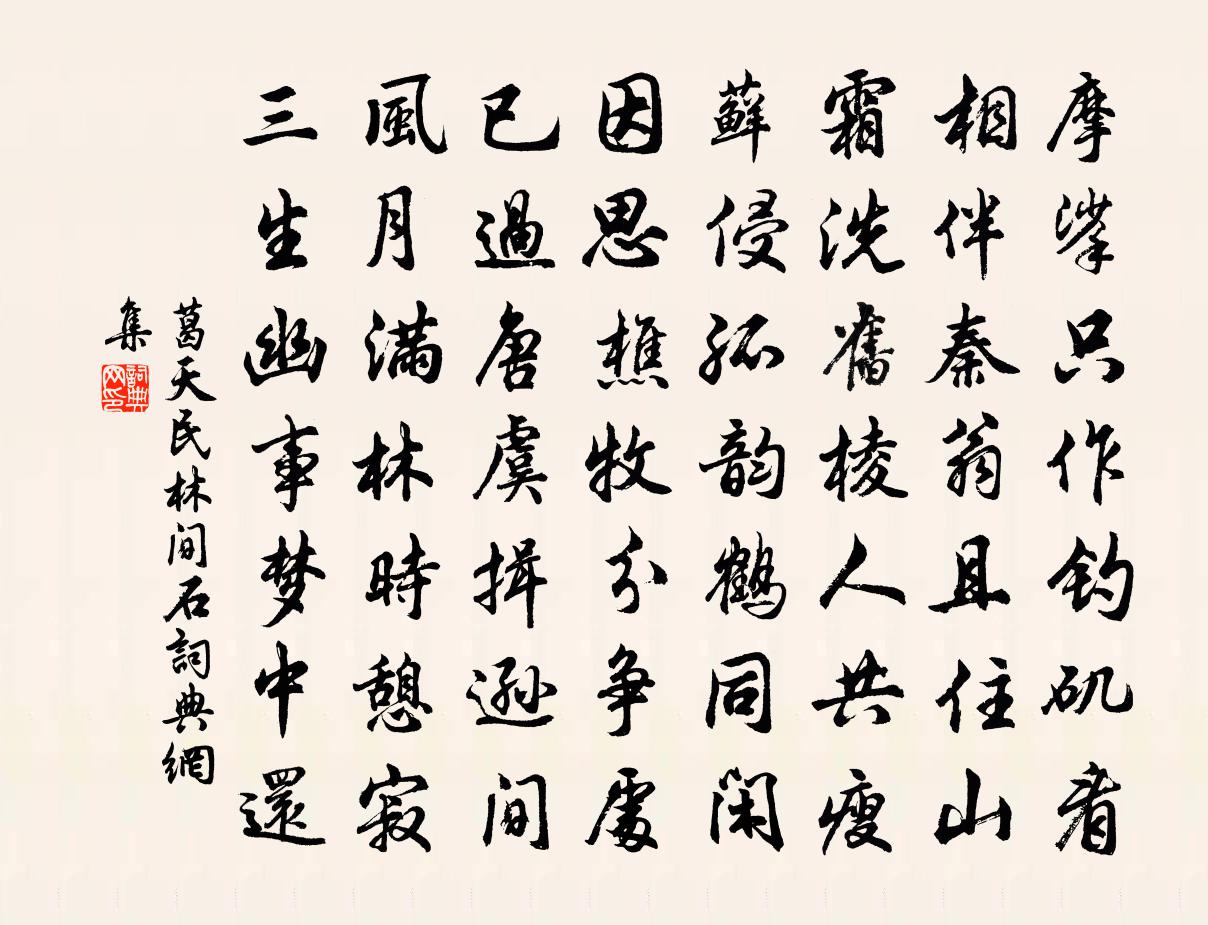 摩挲只作钓矶看
相伴秦翁且住山
霜洗旧棱人共瘦
藓侵孤韵鹤同闲
因思樵牧分争处
已过唐虞揖逊间
風月满林時憩寂
三生幽事梦中還
葛天民林间石詞典網
集
詞典网印